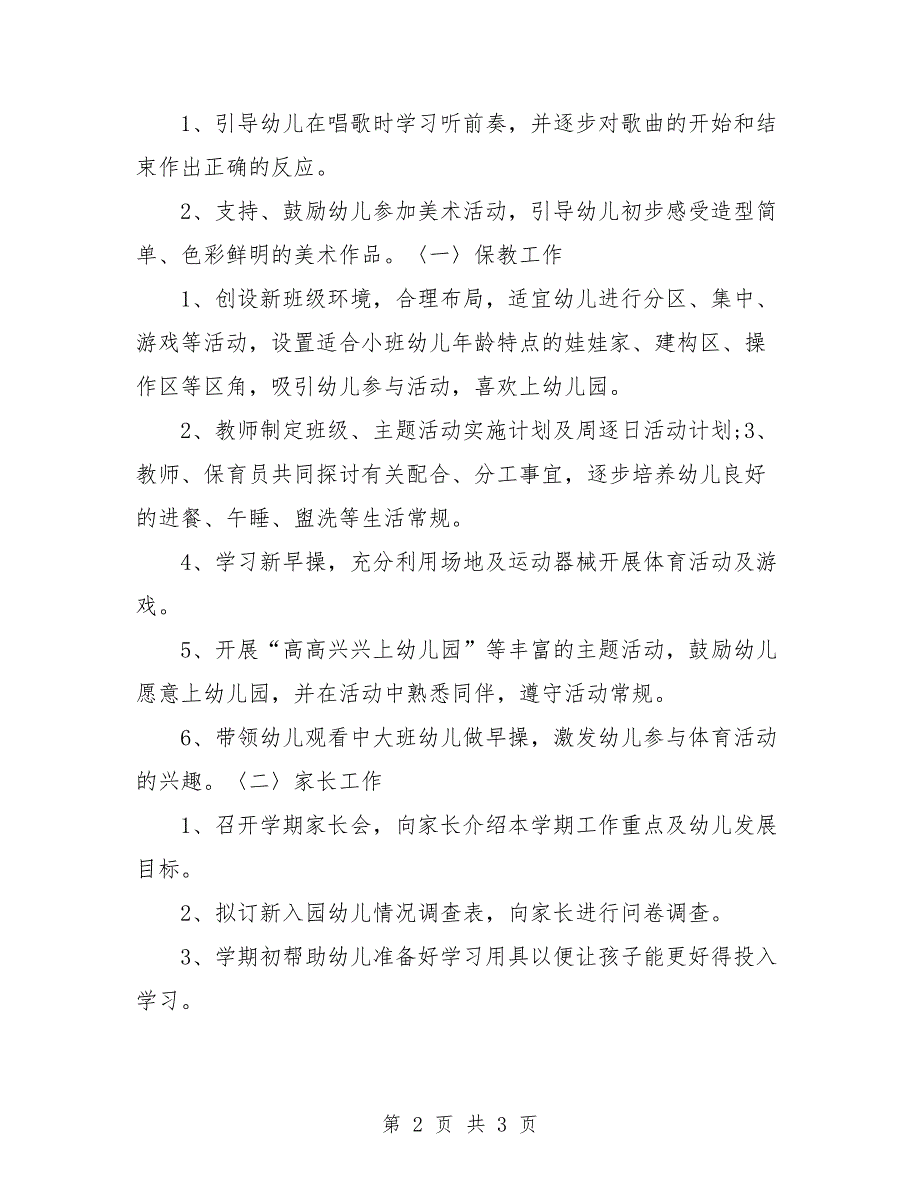 1、引导幼儿在唱歌时学习听前奏，并逐步对歌曲的开始和结
束作出正确的反应。
2、支持、鼓励幼儿参加美术活动，引导幼儿初步感受造型简
单、色彩鲜明的美术作品。〈一〉保教工作
1、创设新班级环境，合理布局，适宜幼儿进行分区、集中、
游戏等活动，设置适合小班幼儿年龄特点的娃娃家、建构区、操
作区等区角，吸引幼儿参与活动，喜欢上幼儿园。
2、教师制定班级、主题活动实施计划及周逐日活动计划;3、
教师、保育员共同探讨有关配合、分工事宜，逐步培养幼儿良好
的进餐、午睡、盥洗等生活常规。
4、学习新早操，充分利用场地及运动器械开展体育活动及游
戏。
5、开展“高高兴兴上幼儿园”等丰富的主题活动，鼓励幼儿
愿意上幼儿园，并在活动中熟悉同伴，遵守活动常规。
6、带领幼儿观看中大班幼儿做早操，激发幼儿参与体育活动
的兴趣。〈二〉家长工作
1、召开学期家长会，向家长介绍本学期工作重点及幼儿发展
目标。
2、拟订新入园幼儿情况调查表，向家长进行问卷调查。
3、学期初帮助幼儿准备好学习用具以便让孩子能更好得投入
学习。
第 2 页 共 3 页